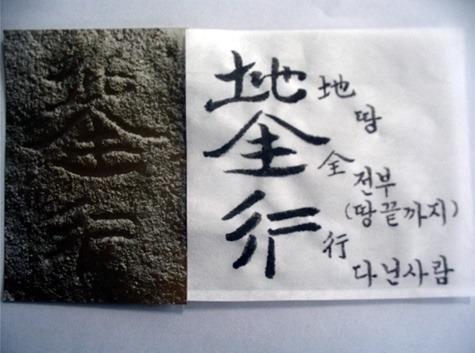 地全行
地全行
地
땅
全
전부
(땅끝까지)
行
다닌사람